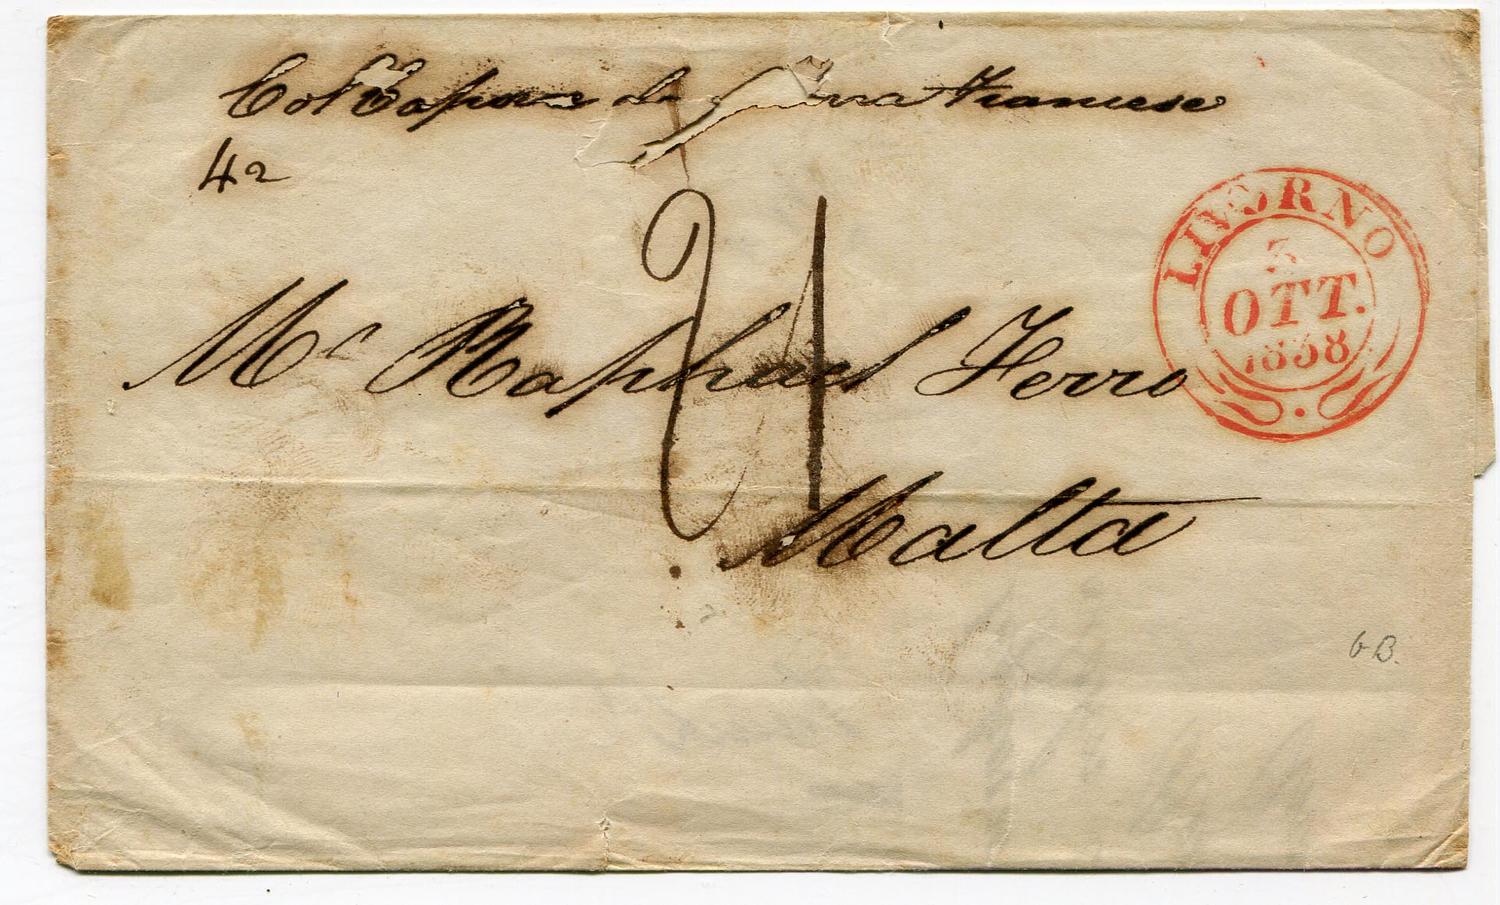 Col Vapore da guerra Francese
42
21
Mr Raphael Ferro
Malta
LIVORNO
3
OTT.
1838
6B.